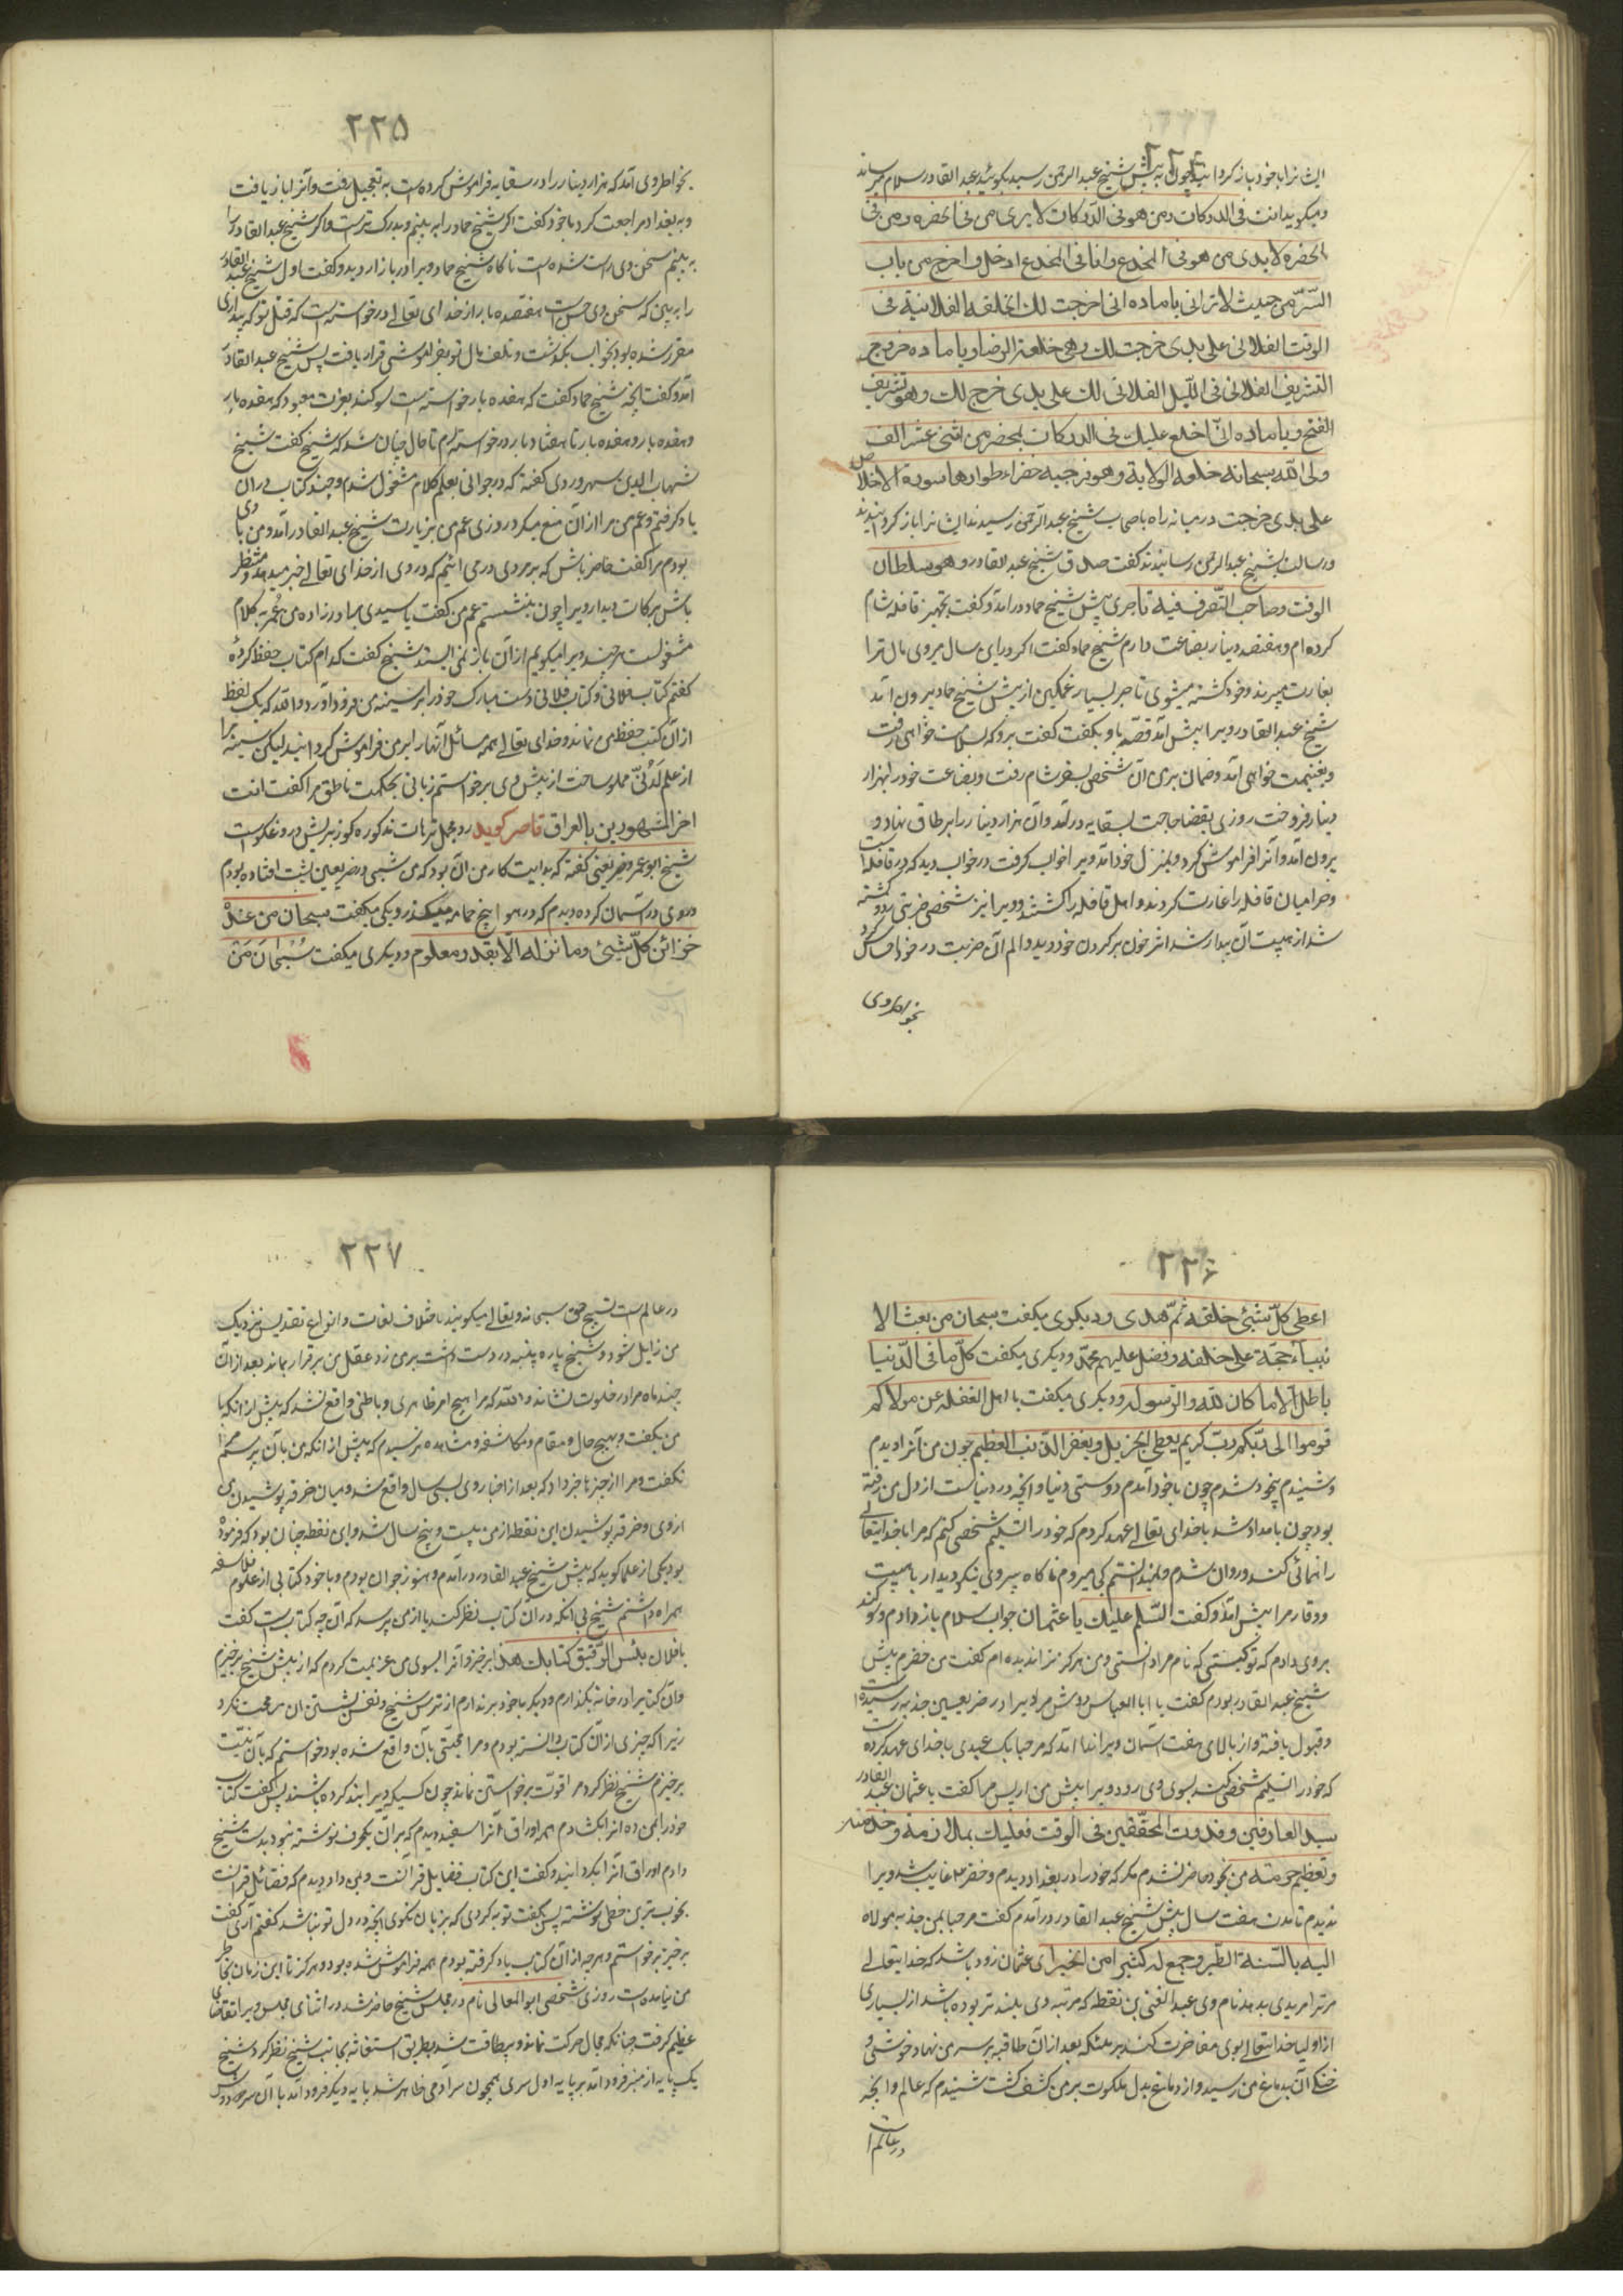 ٢٢٤
ایشانرا با خود باز گردانید چون به پیش شیخ عبد الرحمن رسید بگوئید عبد القادر سلام میرساند
و میگوید انت فی الدرکات و من هو فی الدرکات لا یری من فی الحضره و من فی
الحضره لا یدی من هو فی المخدع و انا فی المخدع ادخل و اخرج من باب
السّرّ من حیث لا ترانی باماده انی اخرجت لك الخلقه الفلانیة فی
الوقت الفلانی علی یدی خرجت لك وهی خلعة الرضا و باماده خروج
التشریف الفلانی فی اللّیل الفلانی لك علی یدی خرج لك وهو تشریف
الفتح و یا ماده انّ اخلع علیك فی الدرکات بمحضر من اثنی عشر الف
ولی الله سبحانه خلعه الولایة وهو فرجیه خضراء طرازها سورة الاخلاص
علی یدی خرجت در میانه راه باصحاب شیخ عبد الرحمن رسیدند ایشانرا باز گردانیدند
و رسالت بشیخ عبد الرحمن رسانیدند گفت صدق شیخ عبد القادر و هو سلطان
الوقت و صاحب التّصرف فیه تاجری پیش شیخ حماد درآمد و گفت تجهیز قافله شام
کرده ام و هفتصد دینار بضاعت دارم شیخ حماد گفت اگر درین سال میروی مال ترا
بغارت میبرند و خود کشته میشوی تاجر بسیار غمگین از پیش شیخ حماد بیرون آمد
شیخ عبد القادر ویرا پیش آمد قصّه باو بگفت گفت برو که بسلامت خواهی رفت
و بغنیمت خواهی آمد و ضمان برمن آن شخص بسفر شام رفت و بضاعت خود را بهزار
دینار فروخت روزی بقضا حاجت بسقایه درآمد و آن هزار دینار را بر طاق نهاد و
بیرون آمد و آنرا فراموش کرد و بمنزل خود آمد ویرا خواب گرفت در خواب دید که در قافله است
و حرامیان قافله را غارت کردند و اهل قافله را کشتند و ویرا نیز شخصی ضربتی زد و کشته
شد از هیبت آن بیدار شد اثر خون بر گردن خود دید و الم آن ضربت در خود احساس کرد
بخواطر وی
٢٢٥
بخواطر وی آمد که هزار دینار را در سقایه فراموش کرده است به تعجیل رفت و آنرا باز یافت
و به بغداد مراجعت کرد با خود گفت اگر شیخ حماد را به بینم وی بزرگ ترست و اگر شیخ عبد القادر را
به بینم سخن وی راست شده است ناگاه شیخ حماد ویرا در بازار دید و گفت اول شیخ عبد القادر
را به بین که سخن وی حق است هفتصده بار از خدای تعالی درخواسته است که قتل تو که به بیداری
مقرر شده بود بخواب بگذشت و تلف مال تو بفراموشی قرار یافت پس شیخ عبد القادر
آمد و گفت انچه شیخ حماد گفت که هفده بار خواسته است سوگند بعزت معبود که هفده بار
و هفده بار و هفده بار تا هفتاد بار درخواسته ام تا حال چنان شد که شیخ گفت شیخ
شهاب الدین سهروردی گفته که در جوانی بعلم کلام مشغول شدم و چند کتاب در آن
یاد گرفتم و عم من مرا از آن منع میکرد روزی عم من بزیارت شیخ عبد القادر آمد و من با وی
بودم مرا گفت حاضر باش که بر مردی درمی ائیم که دل وی از خدای تعالی خبر میدهد و منتظر
باش برکات دیدار ویرا چون بنشستم عم من گفت یا سیدی برادرزاده من عمر به کلام
مشغولست هر چند ویرا میگویم از آن باز نمی ایستد شیخ گفت کدام کتاب حفظ کردهٔ
گفتم کتاب فلانی و کتاب فلانی دست مبارک خود را بر سینه من فرود آورد والله که یک لفظ
از آن کتب حفظ من نماند و خدای تعالی همه مسائل آنها را بر من فراموش گردانید لیکن سینه مرا
از علم لَدُنّی مملو ساخت از پیش وی برخواستم زبانی بحکمت ناطق مرا گفت انت
اخر المشهورین بالعراق قاصر گوید رد مجمل ترهات مذکوره کوزیریش و دروغگوست
شیخ ابو عمرو صریفینی گفته که بدایت کار من آن بود که من شبی در صریفین بپشت افتاده بودم
و روی در آسمان کرده دیدم که در هوا پنج حمام میگذرد یکی میگفت سبحان من عنده
خزائن کلّ شیئ و ما ننزله الا بقدر معلوم و دیگری میگفت سُبْحَانَ مَنْ
٢٢٦
اعطی کلّ شیئ خلقه ثمّ هدی و دیگری میگفت سبحان من بعث الا
نبیاء حجّة علی خلقه و فضل علیهم محمّد و دیگری میگفت کلّ ما فی الدّنیا
باطل الا ما کان لله و الرسوله و دیگری میگفت یا اهل الغفله عن مولاکم
قوموا الی ربّکم ربّ کریم یعطی الجزیل و یغفر الذّنب العظیم چون من آنرا دیدم
و شنیدم بیخود شدم چون باخود آمدم دوستی دنیا و انچه در دنیاست از دل من رفته
بود چون بامداد شد با خدای تعالی عهد کردم که خود را تسلیم شخصی کنم که مرا با خدایتعالی
راهنمائی کند و روان شدم و نمیدانستم کی میروم ناگاه پیروی نیکو دیدار با هیبت
و وقار مرا پیش آمد و گفت السّلم علیك یا عثمان جواب سلام باز دادم و سوگند
بروی دادم که تو کیستی که نام مرا دانستی و من هرگز ترا ندیده ام گفت من خضرم پیش
شیخ عبد القادر بودم گفت یا ابا العباس دوش مرد یرا در صریفین جذبه رسیده است
و قبول یافته و از بالای هفت آسمان ویرا ندا آمد که مرحبا بک عبدی با خدای عهد کرده است
که خود را تسلیم شخصی کند بسوی وی رو و ویرا پیش من آر پس مرا گفت یا عثمان عبد القادر
سید العارفین و قدوت المحقّقین فی الوقت فعلیك بملازمة و خدمته
و تعظیم حرمته من بخود حاضر نشدم مگر که خود را در بغداد دیدم و خضر ع غایب شد ویرا
ندیدم تا مدت هفت سال پیش شیخ عبد القادر درآمدم گفت مرحبا بمن جذبه مولاه
الیه بالسّنة الطّیر و جمع له کثیرا من الخیر ای عثمان زود باشد که خدایتعالی
مرترا مریدی بدهد نام وی عبد الغنی بن نقطه که مرتبه وی بلند تر بوده باشد از بسیاری
از اولیا خدایتعالی بوی مفاخرت کند بر ملئکه بعد از آن طاقیه بر سر من نهاد خوشی و
خنکی آن بدماغ من رسید و از دماغ بدل ملکوت بر من کشف گشت شنیدم که عالم و انچه
در عالم ا
٢٢٧
در عالم است تسبیح حق سبحانه و تعالی میگویند باختلاف لغات و انواع تقدیس نزدیک
من زایل شود و شیخ پاره پنبه در دست داشت برمن زد عقل من برقرار بماند بعد از آن
چند ماه مرا در خلوت نشاند والله که مرا هیچ امر ظاهری و باطنی واقع نشد که پیش از انکه با
من بگفت و بهیچ حال و مقام و مکاشفه و مشاهده نرسیدم که پیش از انکه من بآن برسم مرا
نگفت و مرا از چیزها خبر داد که بعد از اخبار وی بسی سال واقع شد و میان خرقه پوشیدن من
از وی و خرقه پوشیدن ابن نقطه از من بیست و پنج سال شد و ابن نقطه چنان بود که فرموده
بود یکی از علما گوید که پیش شیخ عبد القادر درآمدم و هنوز جوان بودم و با خود کتابی از علوم فلاسفه
همراه داشتم شیخ بی انکه در آن کتاب نظر کند یا از من پرسد که آن چه کتاب است گفت
یا فلان بئس الرّفیق کتابك هذا برخیز و آنرا بشوی من عزیمت کردم که از پیش شیخ برخیزم
و آن کتابرا در خانه بگذارم و دیگر باخود برندارم از ترس شیخ و نفس بشستن ان مرحمت نکرد
زیرا که چیزی از آن کتاب دانسته بودم و مرا محبّتی بآن واقع شده بود خواستم که بآن نیّت
برخیزم شیخ نظر کرد مرا قوّت برخواستن نماند چون کسیکه ویرا بند کرده باشند پس گفت کتاب
خود را بمن ده آنرا بگشادم همه اوراق آنرا سفید دیدم که بر آن یکحرف نوشته نبود بدست شیخ
دادم اوراق آنرا بگردانید و گفت این کتاب فضایل قرآنست و بمن داد دیدم که فضائل قرآنست
بخوب ترین خطی نوشته پس گفت توبه کردی که بزبان نگوی انچه در دل تو نباشد گفتم آری گفت
برخیز برخواستم و هر چه از آن کتاب یاد گرفته بودم همه فراموش شده بود و هرگز تا این زمان بخاطر
من نیامده است روزی شخصی ابو المعالی نام در مجلس شیخ حاضر شد در اثنای مجلس ویرا تقاضای
عظیم گرفت چنانکه مجال حرکت نماند و بیطاقت شد بطریق استغاثه بجانب شیخ نظر کرد شیخ
یک پایه از منبر فرود آمد بر پایه اول سری همچون سر آدمی ظاهر شد پایه دیگر فرود آمد با آن سر